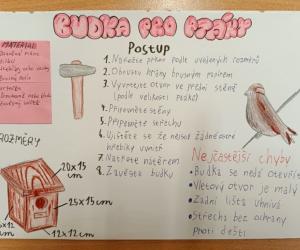 BUDKA PRO PTÁKY
MATERIÁL:
Postup
1. Nařežte prken podle uvedených rozměrů
2. Obruste hrany brusným papírem
3. Vyvrtejte otvor ve přední stěně
(podle velikosti ptáků)
4. Připevněte stěny
5. Připevněte střechu
6. Ujistěte se že nejsou žádné ostré
hřebíky uvnitř
7. Natřete nátěrem
8. Zavěste budku
ROZMĚRY
20x15
cm
25x15 cm
12x12 cm
Nejčastější chyby
• Budka se nedá otevřít
• Vletový otvor je malý
• Zadní lišta uhnívá
• Střecha bez ochrany
proti dešti